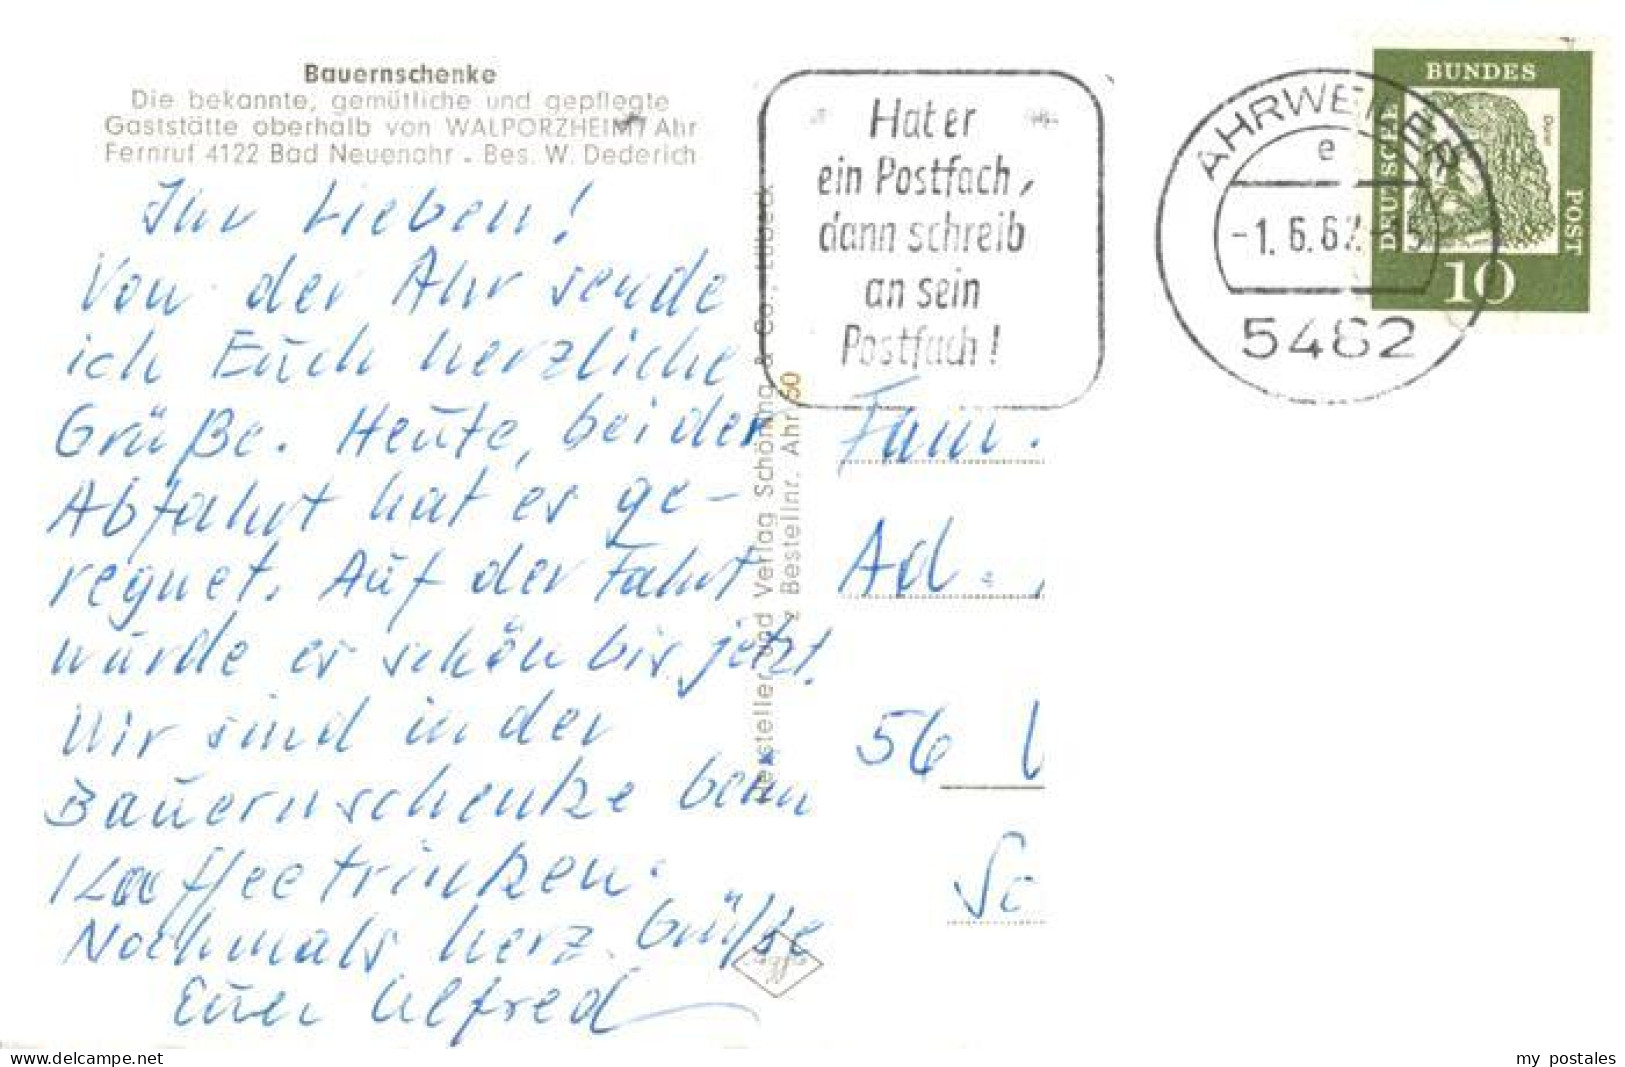 Bauernschenke
Die bekannte, gemütliche und gepflegte
Gaststätte oberhalb von WALPORZHEIM / Ahr
Fernruf 4122 Bad Neuenahr - Bes. W. Dederich
Ihr Lieben!
Von der Ahr sende
ich Euch herzliche
Grüße. Heute, bei der
Abfahrt hat es ge-
regnet. Auf der Fahrt
wurde es schön bis jetzt.
Wir sind in der
Bauernschenke beim
Kaffeetrinken.
Nochmals herz. Grüße
Euer Alfred
Hersteller und Verlag Schöning & Co., Lübeck
z Bestellnr. Ahr 50
Hat er
ein Postfach,
dann schreib
an sein
Postfach!
AHRWEILER
e
-1.6.62
5482
DEUTSCHE
BUNDES
POST
Dürer
10
Fam.
Ad.
56
delcampe.net
my_postales